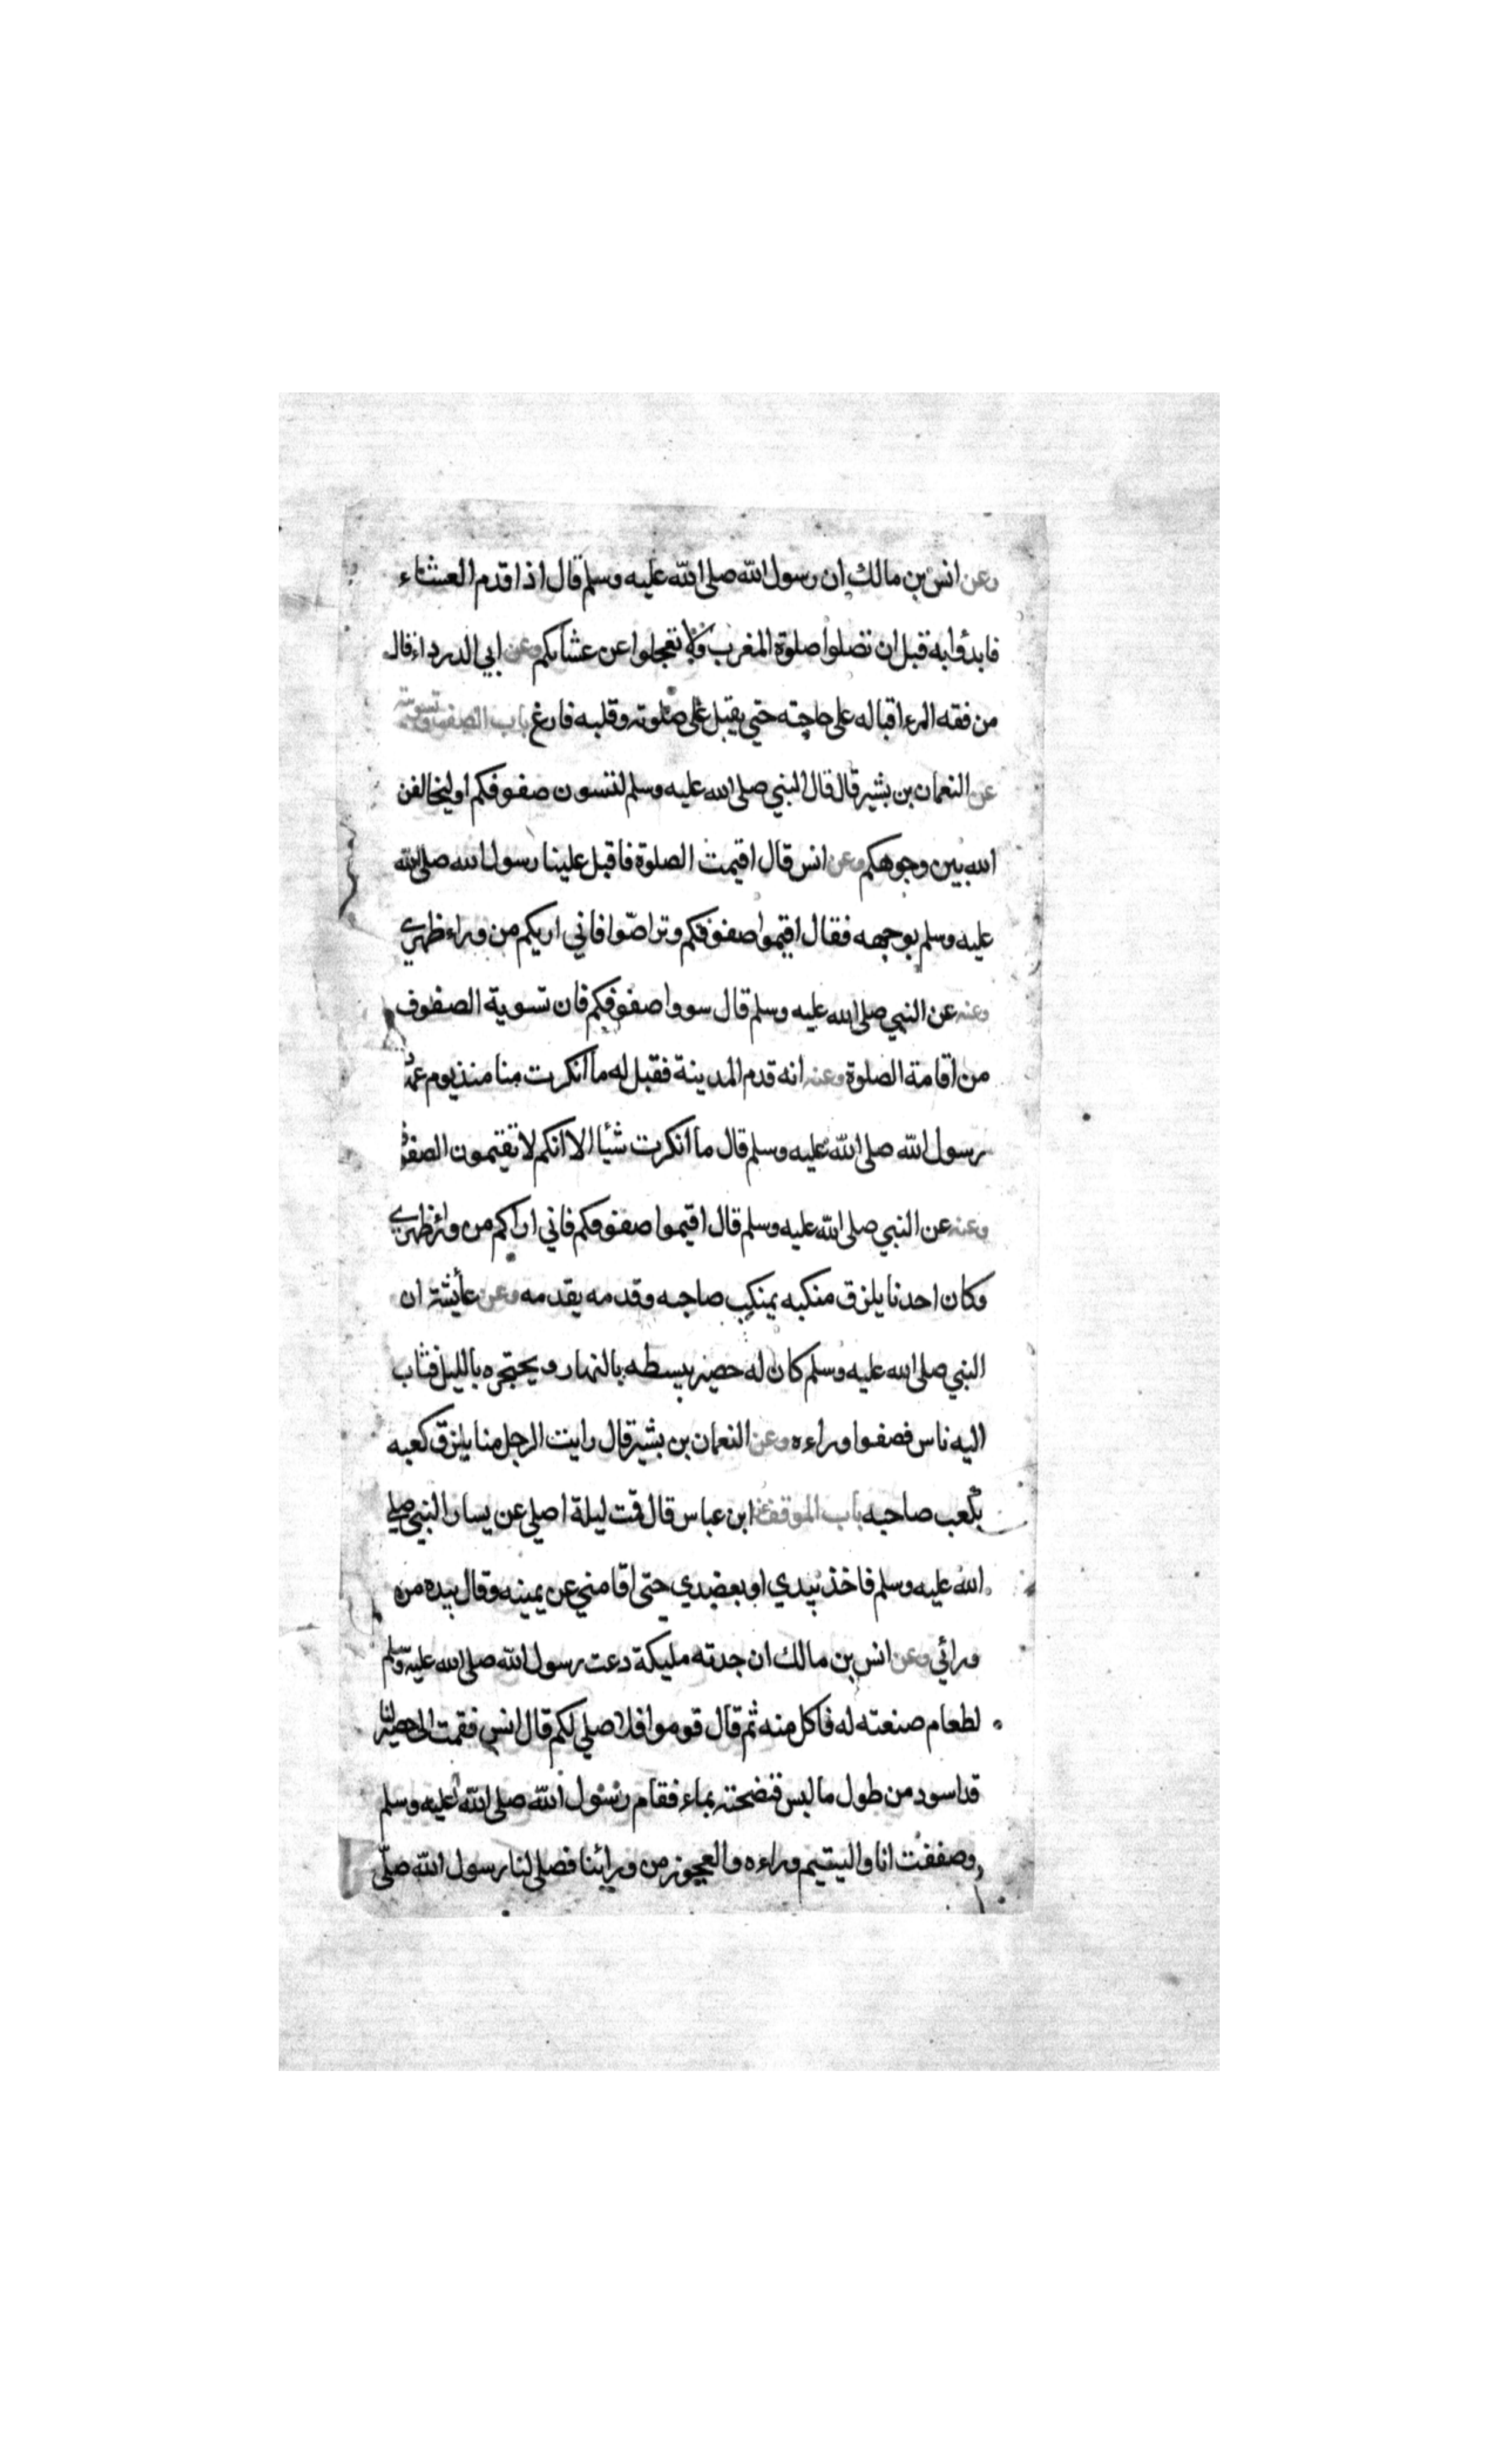 وعن انس بن مالك ان رسول الله صلى الله عليه وسلم قال اذا قدم العشاء
فابدؤا به قبل ان تصلوا صلوة المغرب ولا تعجلوا عن عشائكم وعن ابي الدرداء قال
من فقه المرء اقباله على حاجته حتي يقبل على صلوته وقلبه فارغ باب الصفوف وتسويته
عن النعمان بن بشير قال قال النبي صلى الله عليه وسلم لتسون صفوفكم او ليخالفن
الله بين وجوهكم وعن انس قال اقيمت الصلوة فاقبل علينا رسول الله صلى الله
عليه وسلم بوجهه فقال اقيموا صفوفكم وتراصّوا فاني اريكم من وراء ظهري
وعنه عن النبي صلى الله عليه وسلم قال سووا صفوفكم فان تسوية الصفوف
من اقامة الصلوة وعنه انه قدم المدينة فقيل له ما انكرت منا منذ يوم عهدت
رسول الله صلى الله عليه وسلم قال ما انكرت شيأ الا انكم لا تقيمون الصفوف
وعنه عن النبي صلى الله عليه وسلم قال اقيموا صفوفكم فاني اراكم من وراء ظهري
وكان احدنا يلزق منكبه بمنكب صاحبه وقدمه بقدمه وعن عائشة ان
النبي صلى الله عليه وسلم كان له حصير يبسطه بالنهار ويحتجره بالليل فثاب
اليه ناس فصفوا وراءه وعن النعمان بن بشير قال رايت الرجل منا يلزق كعبه
بكعب صاحبه باب الموقف عن ابن عباس قال قمت ليلة اصلي عن يسار النبي صلى
الله عليه وسلم فاخذ بيدي او بعضدي حتى اقامني عن يمينه وقال بيده من
ورائي وعن انس بن مالك ان جدته مليكة دعت رسول الله صلى الله عليه وسلم
لطعام صنعته له فاكل منه ثم قال قوموا فلاصلي لكم قال انس فقمت الى حصير لنا
قد اسود من طول ما لبس فنضحته بماء فقام رسول الله صلى الله عليه وسلم
وصففت انا واليتيم وراءه والعجوز من ورائنا فصلى لنا رسول الله صلّى